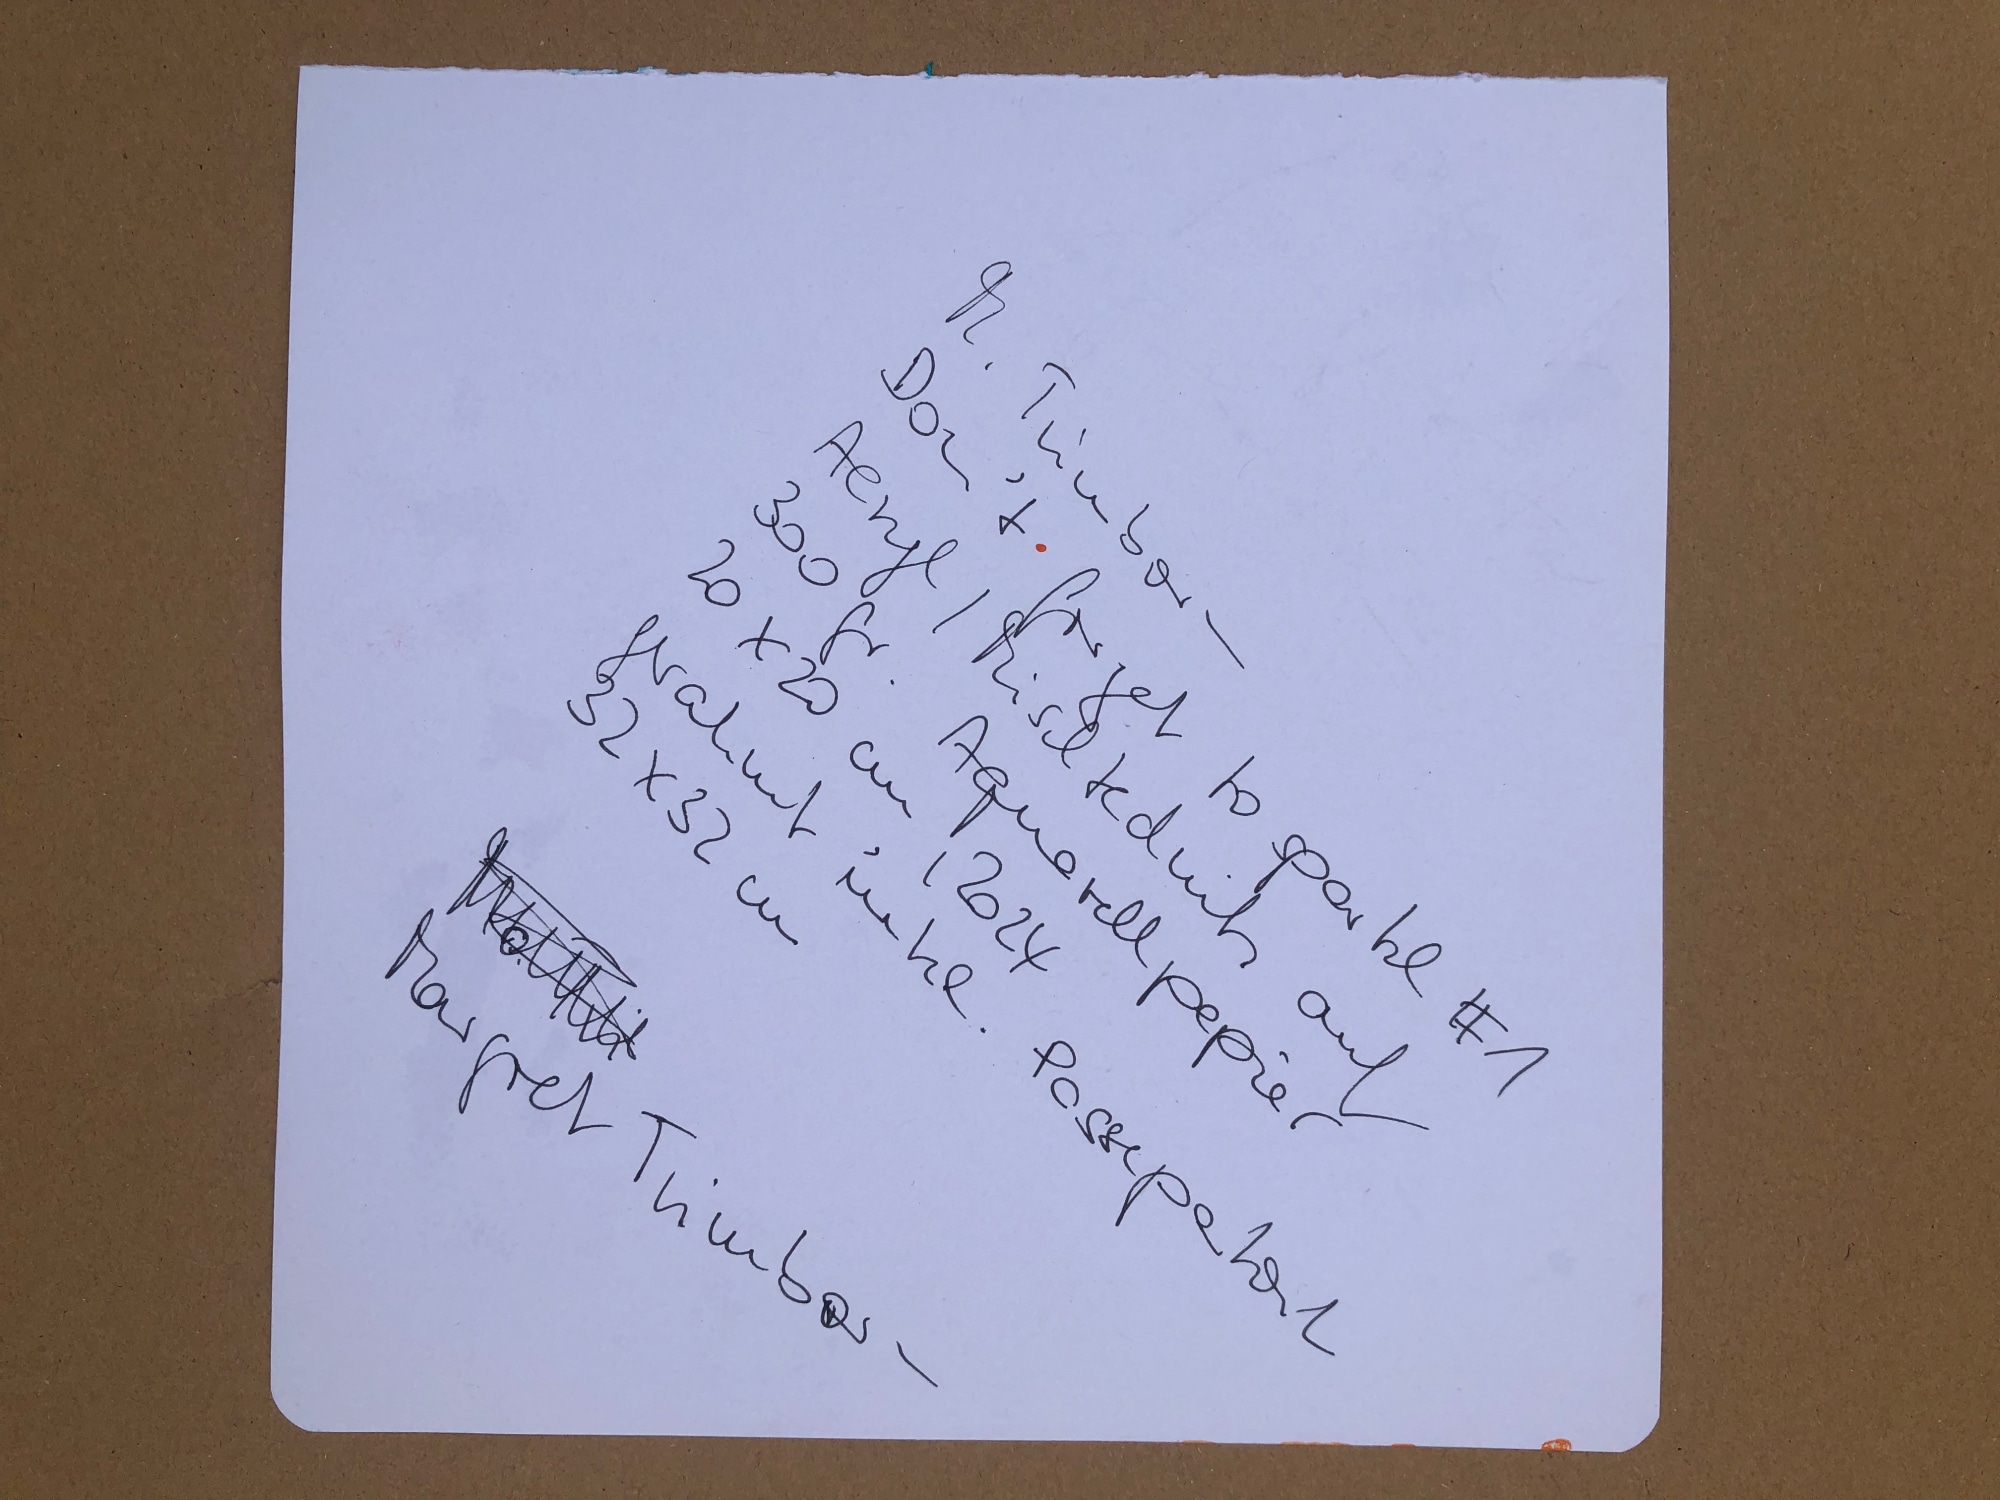 M. Thimbor-
Don't forget to sparkle #1
Acryl / Mischtechnik auf
300 gr. Aquarellpapier
20 x 20 cm 12024
gerahmt inkl. Passepartout
32 x 32 cm
Margret Thimbor-